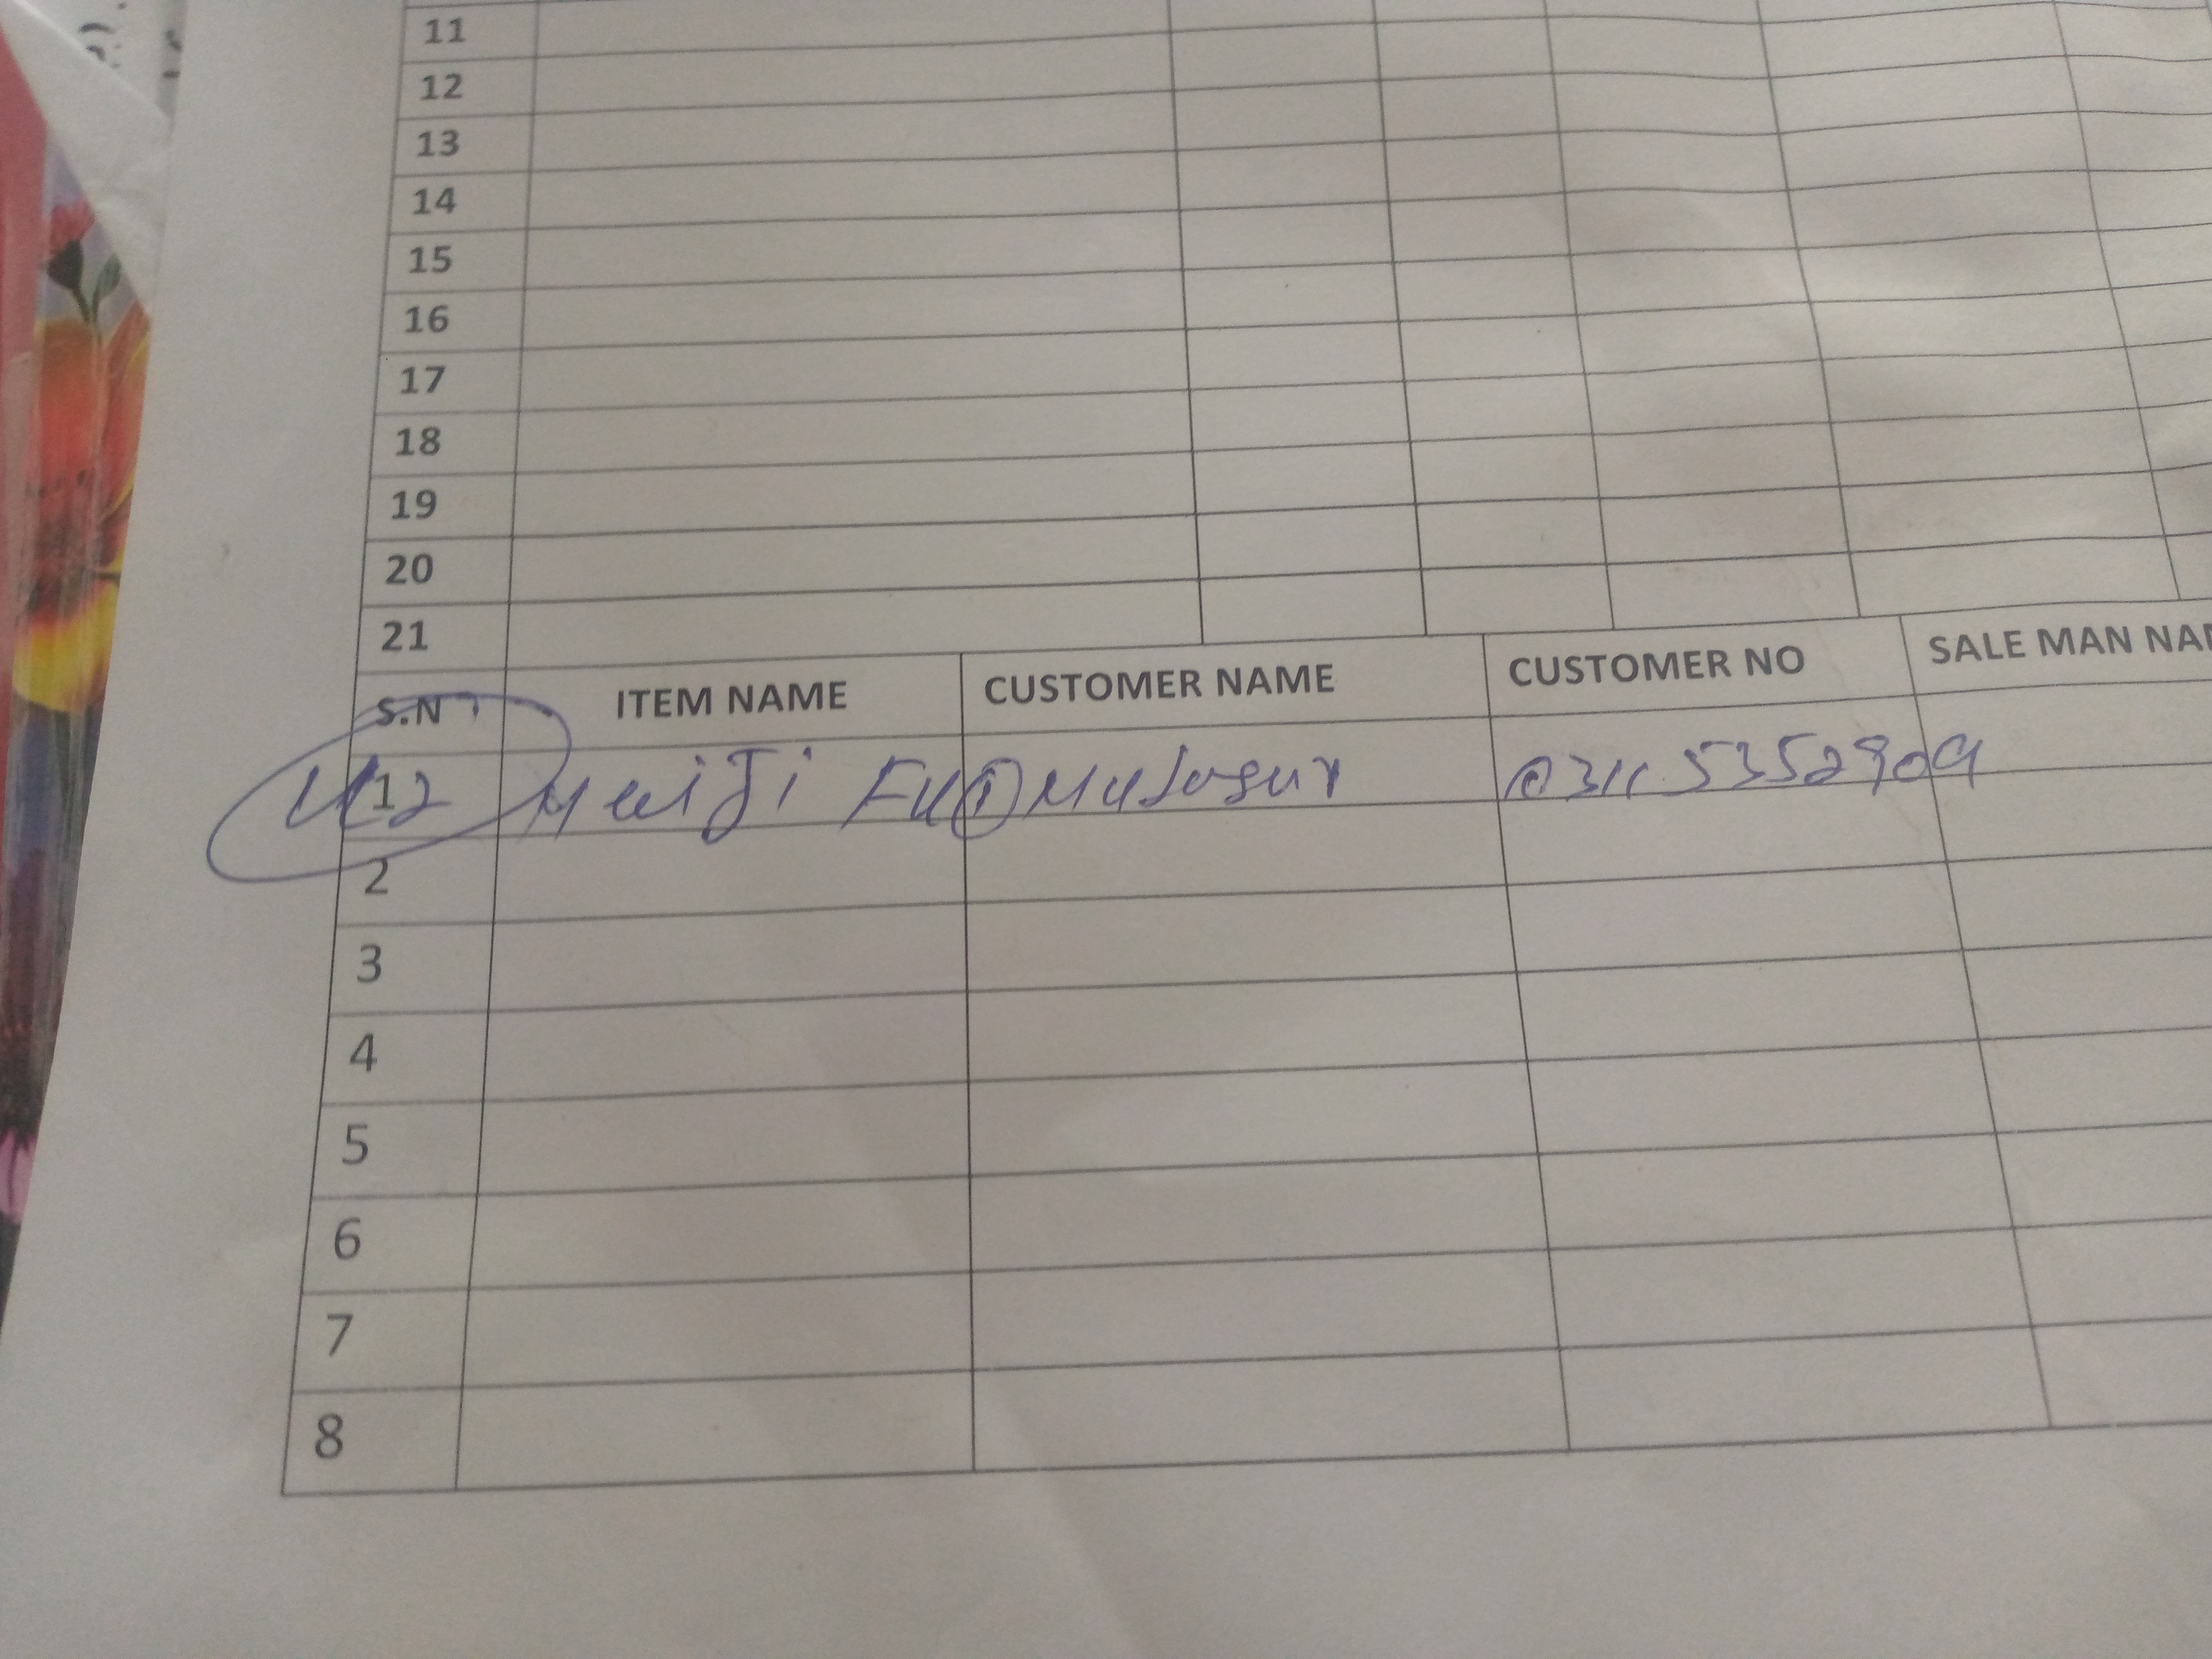 11
12
13
14
15
16
17
18
19
20
21
S.N ITEM NAME CUSTOMER NAME CUSTOMER NO SALE MAN
1 Meiji FU ①
2
3
4
5
6
7
8